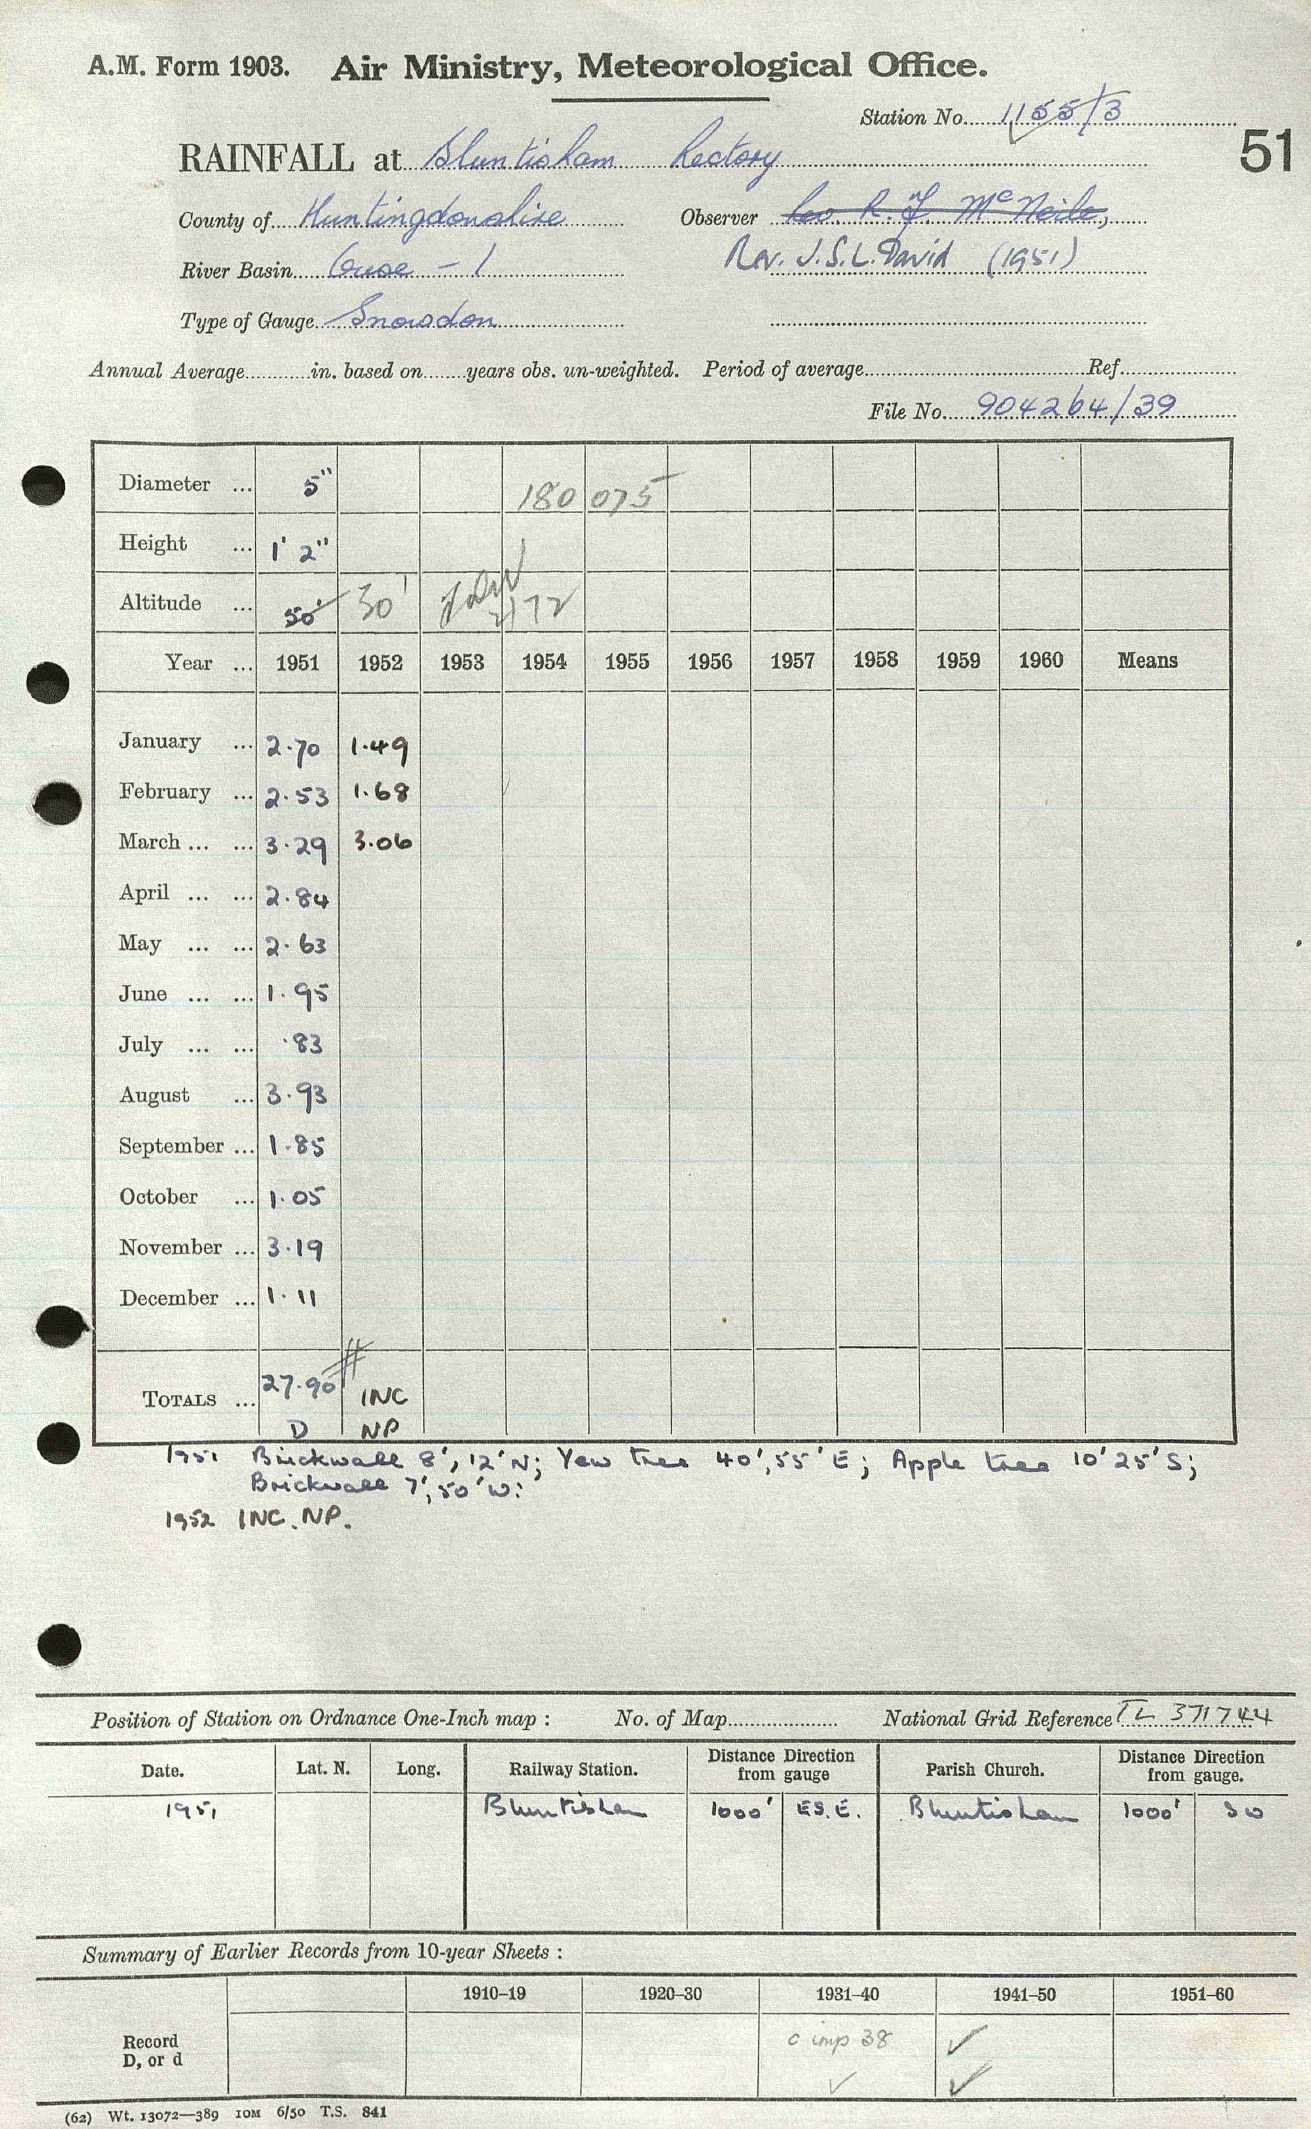 A.M. Form 1903. Air Ministry, Meteorological Office.
Station No. 1155/3
51
RAINFALL at Bluntisham Rectory
County of Huntingdonshire Observer Rev. R. J. McNeile,
River Basin Ouse - 1 Rev. J.S.L. David (1951)
Type of Gauge Snowdon
Annual Average in. based on years obs. un-weighted. Period of average Ref.
File No. 904264/39
Diameter ... 5" 180 075
Height ... 1' 2"
Altitude ... 50' 30' 2/72
Year ... 1951 1952 1953 1954 1955 1956 1957 1958 1959 1960 Means
January ... 2.70 1.49
February ... 2.53 1.68
March ... ... 3.29 3.06
April ... ... 2.84
May ... ... 2.63
June ... ... 1.95
July ... ... .83
August ... 3.93
September ... 1.85
October ... 1.05
November ... 3.19
December ... 1.11
TOTALS ... 27.90 # INC
D NP
1951 Brickwall 8', 12' N; Yew tree 40', 55' E; Apple tree 10' 25' S;
Brickwall 7', 50' W:
1952 INC. NP.
Position of Station on Ordnance One-Inch map : No. of Map National Grid Reference TL 371744
Date. Lat. N. Long. Railway Station. Distance Direction from gauge Parish Church. Distance Direction from gauge.
1951 Bluntisham 1000' ES.E. Bluntisham 1000' SW
Summary of Earlier Records from 10-year Sheets :
1910–19 1920–30 1931–40 1941–50 1951–60
Record c imp 38 ✓
D, or d ✓ ✓
(62) Wt. 13072—389 10M 6/50 T.S. 841